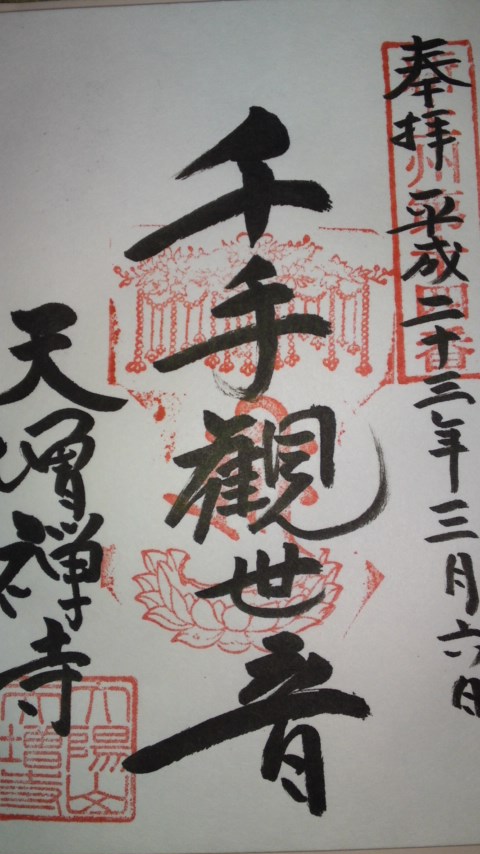 奉拝 平成二十三年三月六日
千手觀世音
天増禅寺